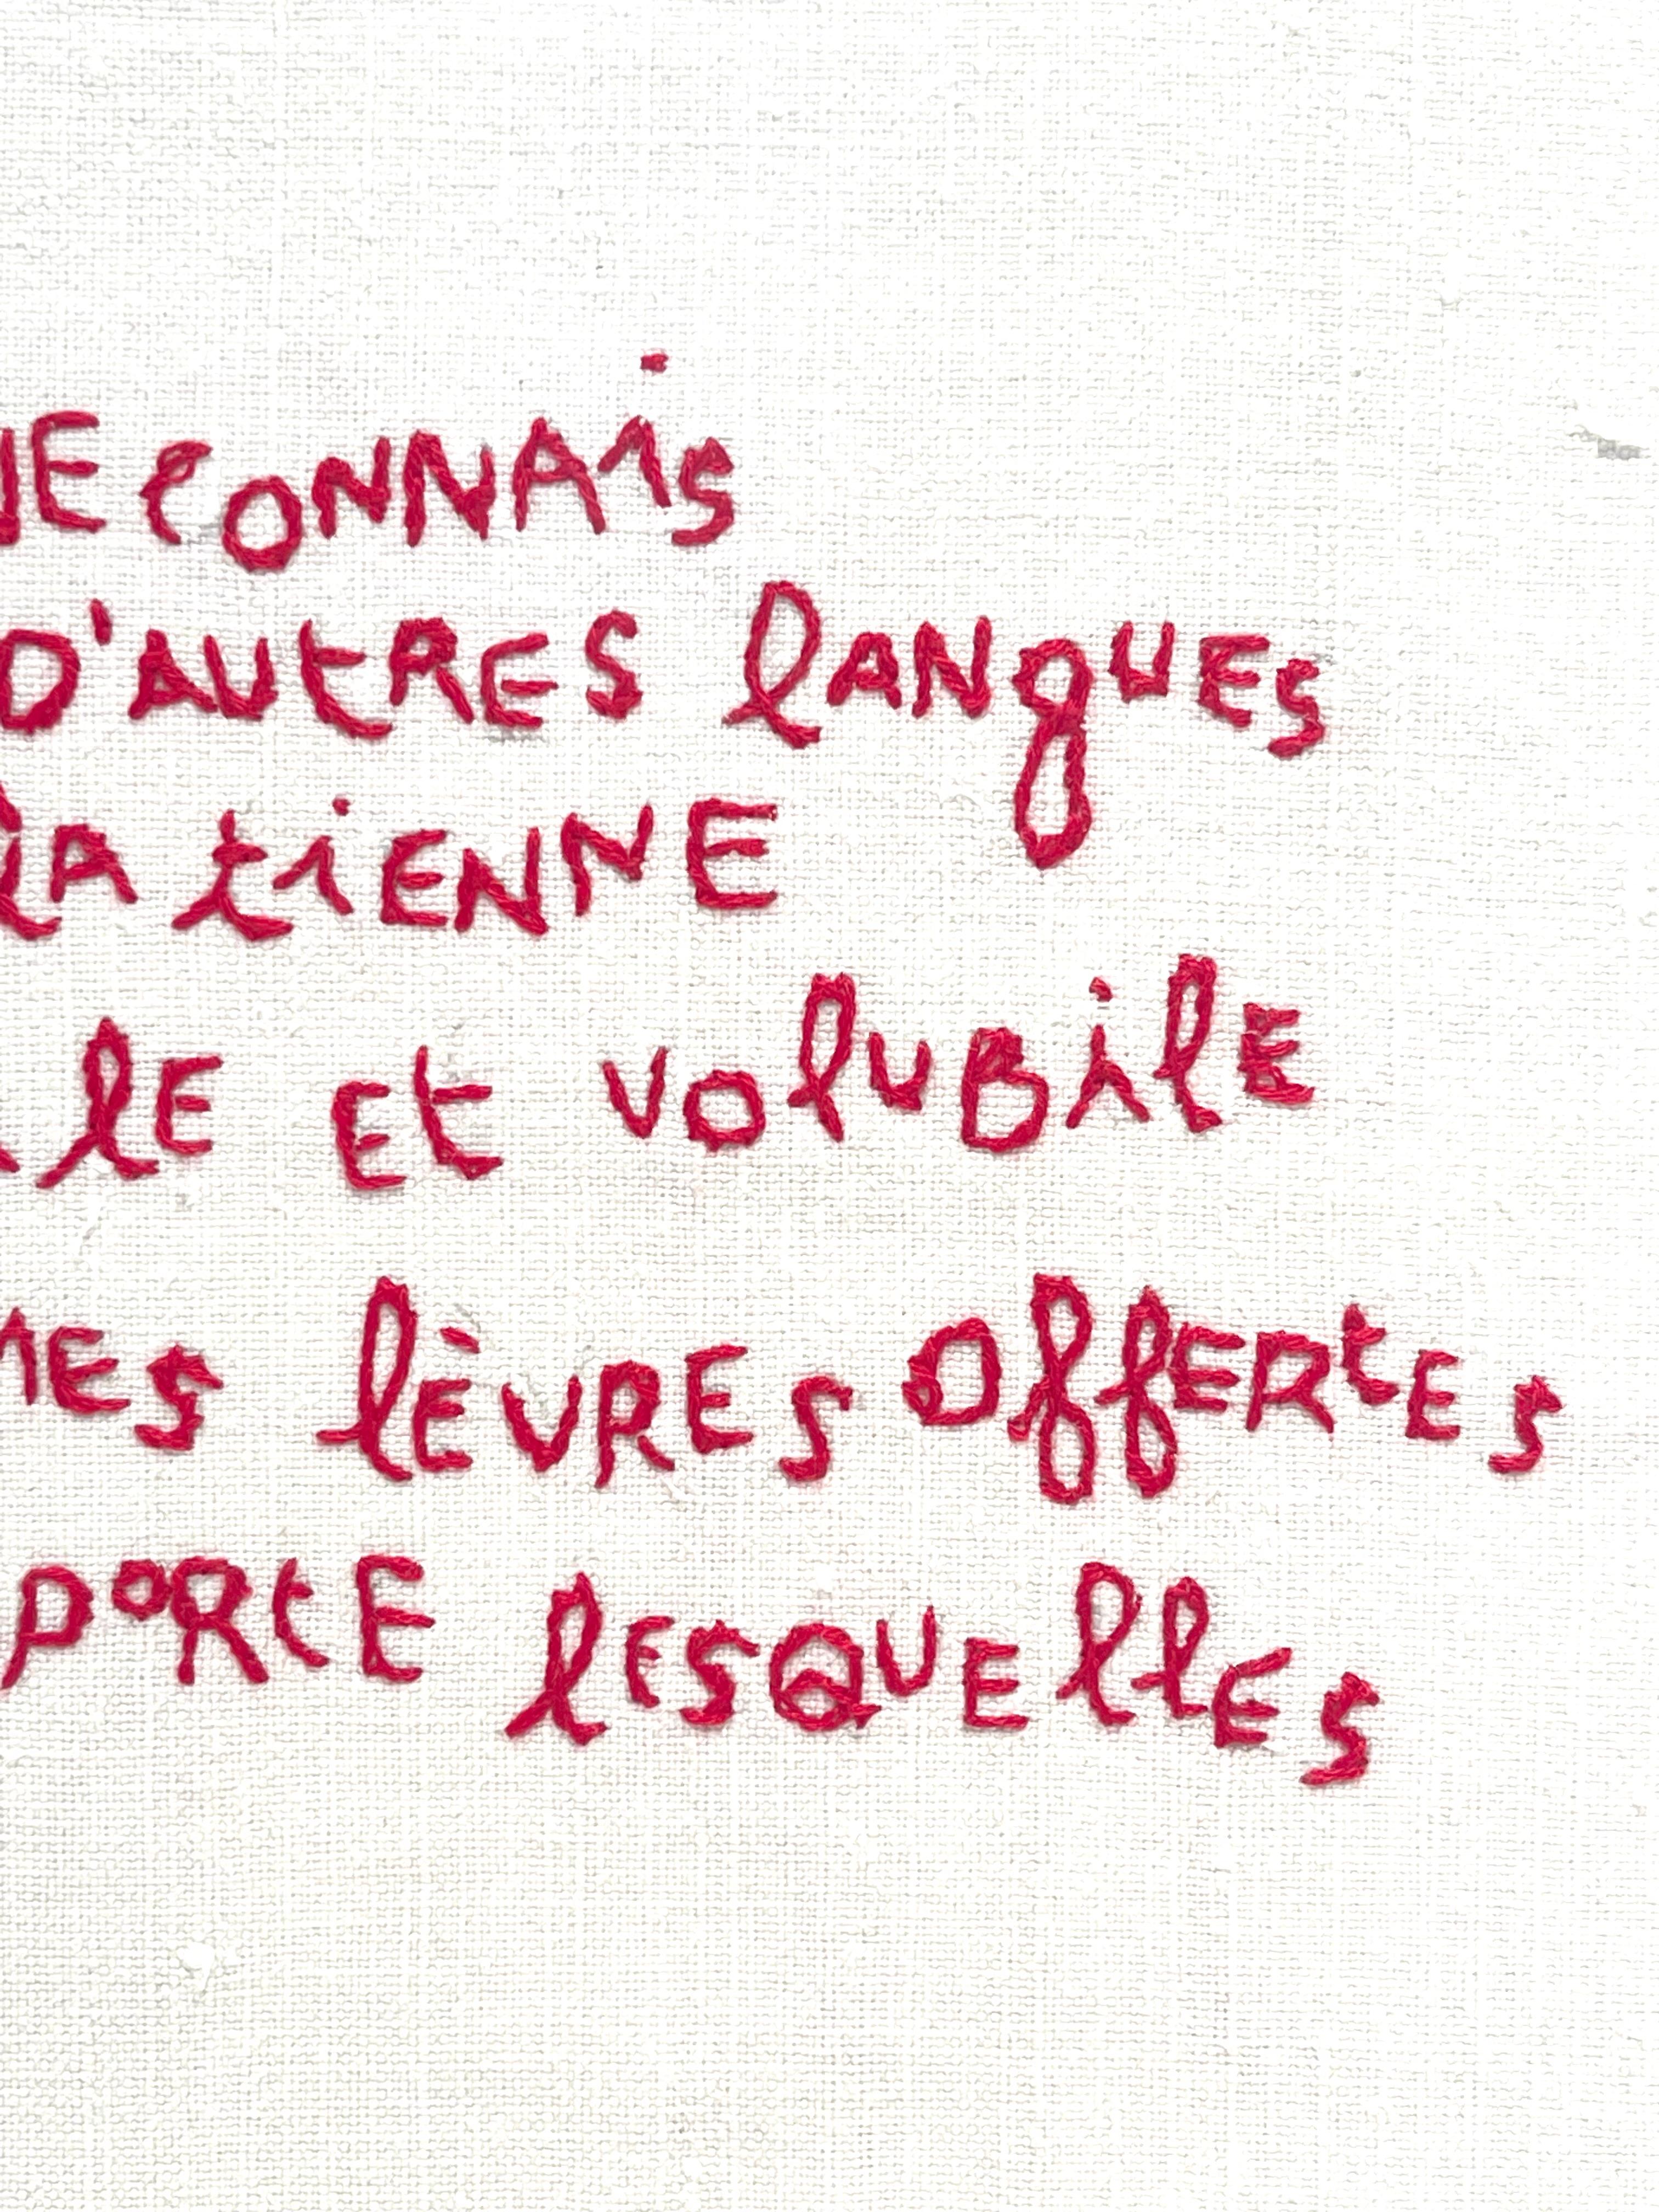 JE CONNAiS
D'AUtRES lANgUES
lA tiENNE
lE Et VOlUBilE
MES lÈVRES OffERtES
PORtE lESQUEllES